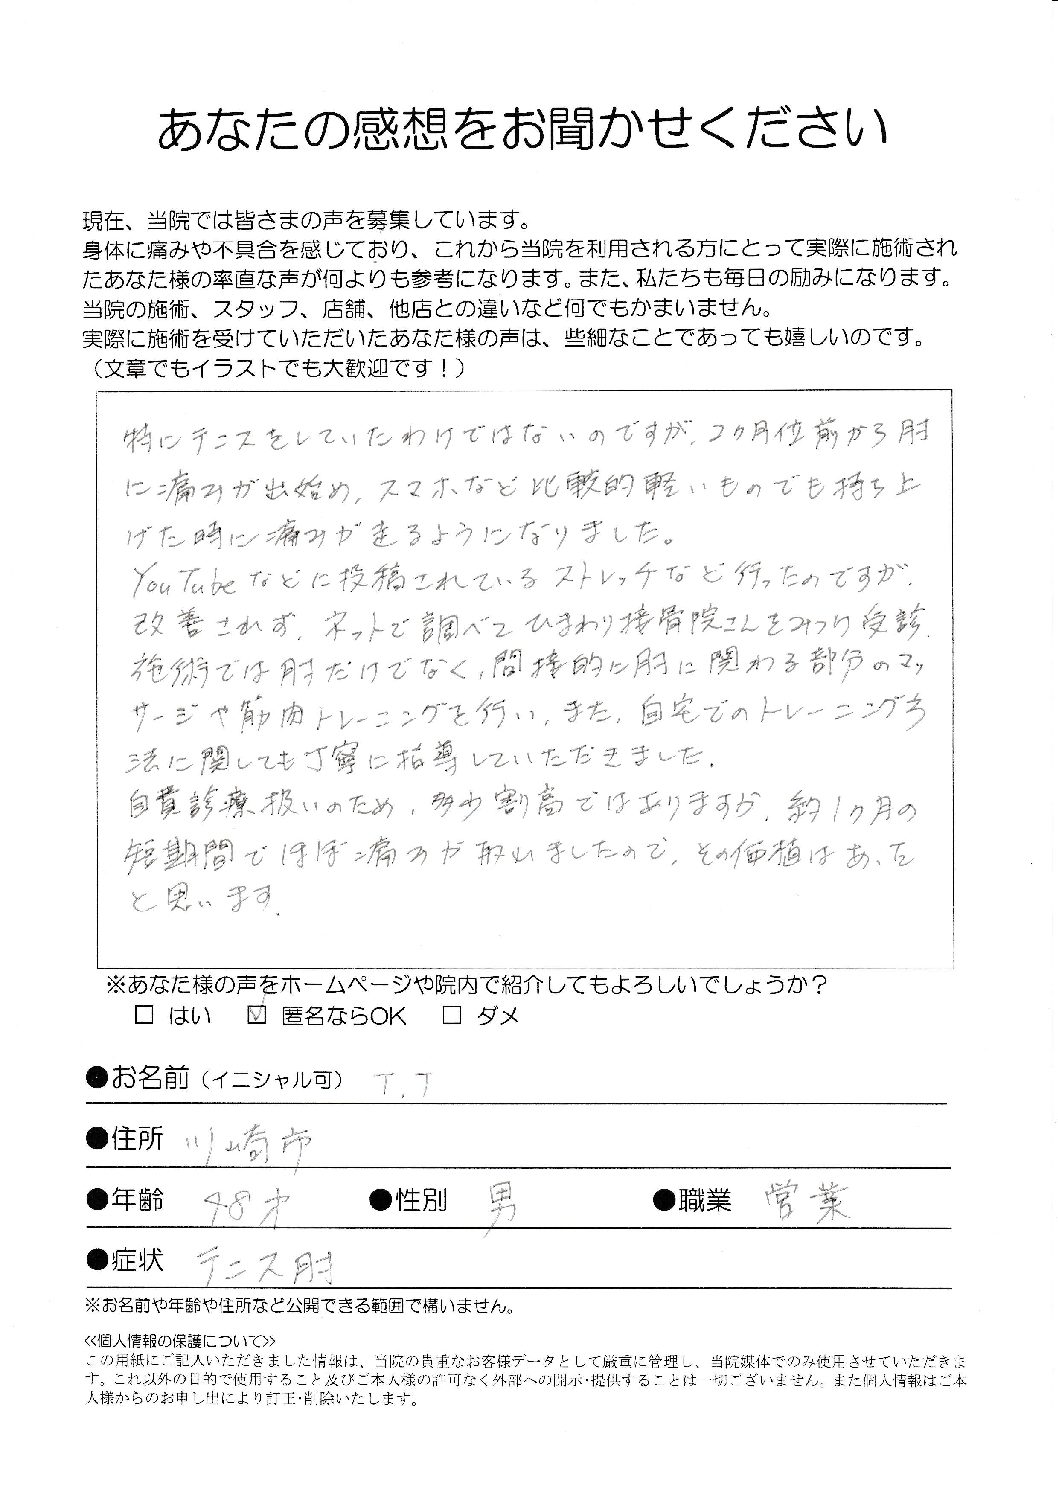 あなたの感想をお聞かせください
現在、当院では皆さまの声を募集しています。
身体に痛みや不具合を感じており、これから当院を利用される方にとって実際に施術され
たあなた様の率直な声が何よりも参考になります。また、私たちも毎日の励みになります。
当院の施術、スタッフ、店舗、他店との違いなど何でもかまいません。
実際に施術を受けていただいたあなた様の声は、些細なことであっても嬉しいのです。
（文章でもイラストでも大歓迎です！）
特にテニスをしていたわけではないのですが、2ヶ月位前から肘
に痛みが出始め、スマホなど比較的軽いものでも持ち上
げた時に痛みが走るようになりました。
YouTubeなどに投稿されているストレッチなど行ったのですが、
改善されず、ネットで調べてひまわり接骨院さんをみつけ受診。
施術では肘だけでなく、間接的に肘に関わる部分のマッ
サージや筋肉トレーニングを行い、また、自宅でのトレーニング方
法に関しても丁寧に指導していただきました。
自費診療扱いのため、多少割高ではありますが、約1ヶ月の
短期間でほぼ痛みが取れましたので、その価値はあった
と思います。
※あなた様の声をホームページや院内で紹介してもよろしいでしょうか？
□ はい ☑ 匿名ならOK □ ダメ
●お名前（イニシャル可） T.T
●住所 川崎市
●年齢 48才 ●性別 男 ●職業 営業
●症状 テニス肘
※お名前や年齢や住所など公開できる範囲で構いません。
≪個人情報の保護について≫
この用紙にご記入いただきました情報は、当院の貴重なお客様データとして厳重に管理し、当院媒体でのみ使用させていただきま
す。これ以外の目的で使用すること及びご本人様の許可なく外部への開示・提供することは一切ございません。また個人情報はご本
人様からのお申し出により訂正・削除いたします。